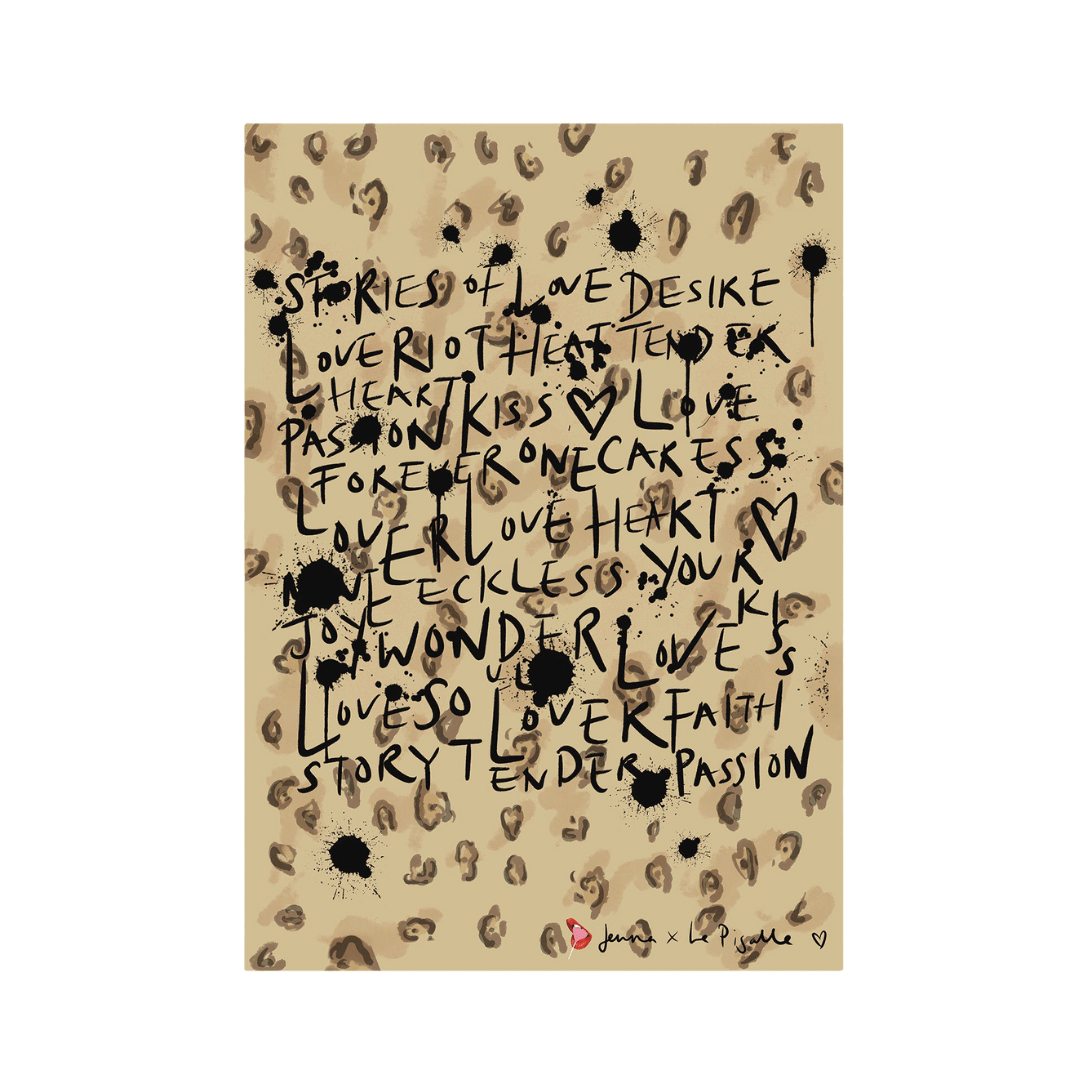 STORIES OF LOVE DESIRE
LOVE RIOT HEAT TENDER
HEART KISS ♡ LOVE
PASSION
FOREVER ONE CARESS
LOVER LOVE HEART ♡
RECKLESS YOUR
JOY WONDER LOVE KISS
LOVE SO LOVER FAITH
STORY TENDER PASSION
Jenna x Le Pigalle ♡